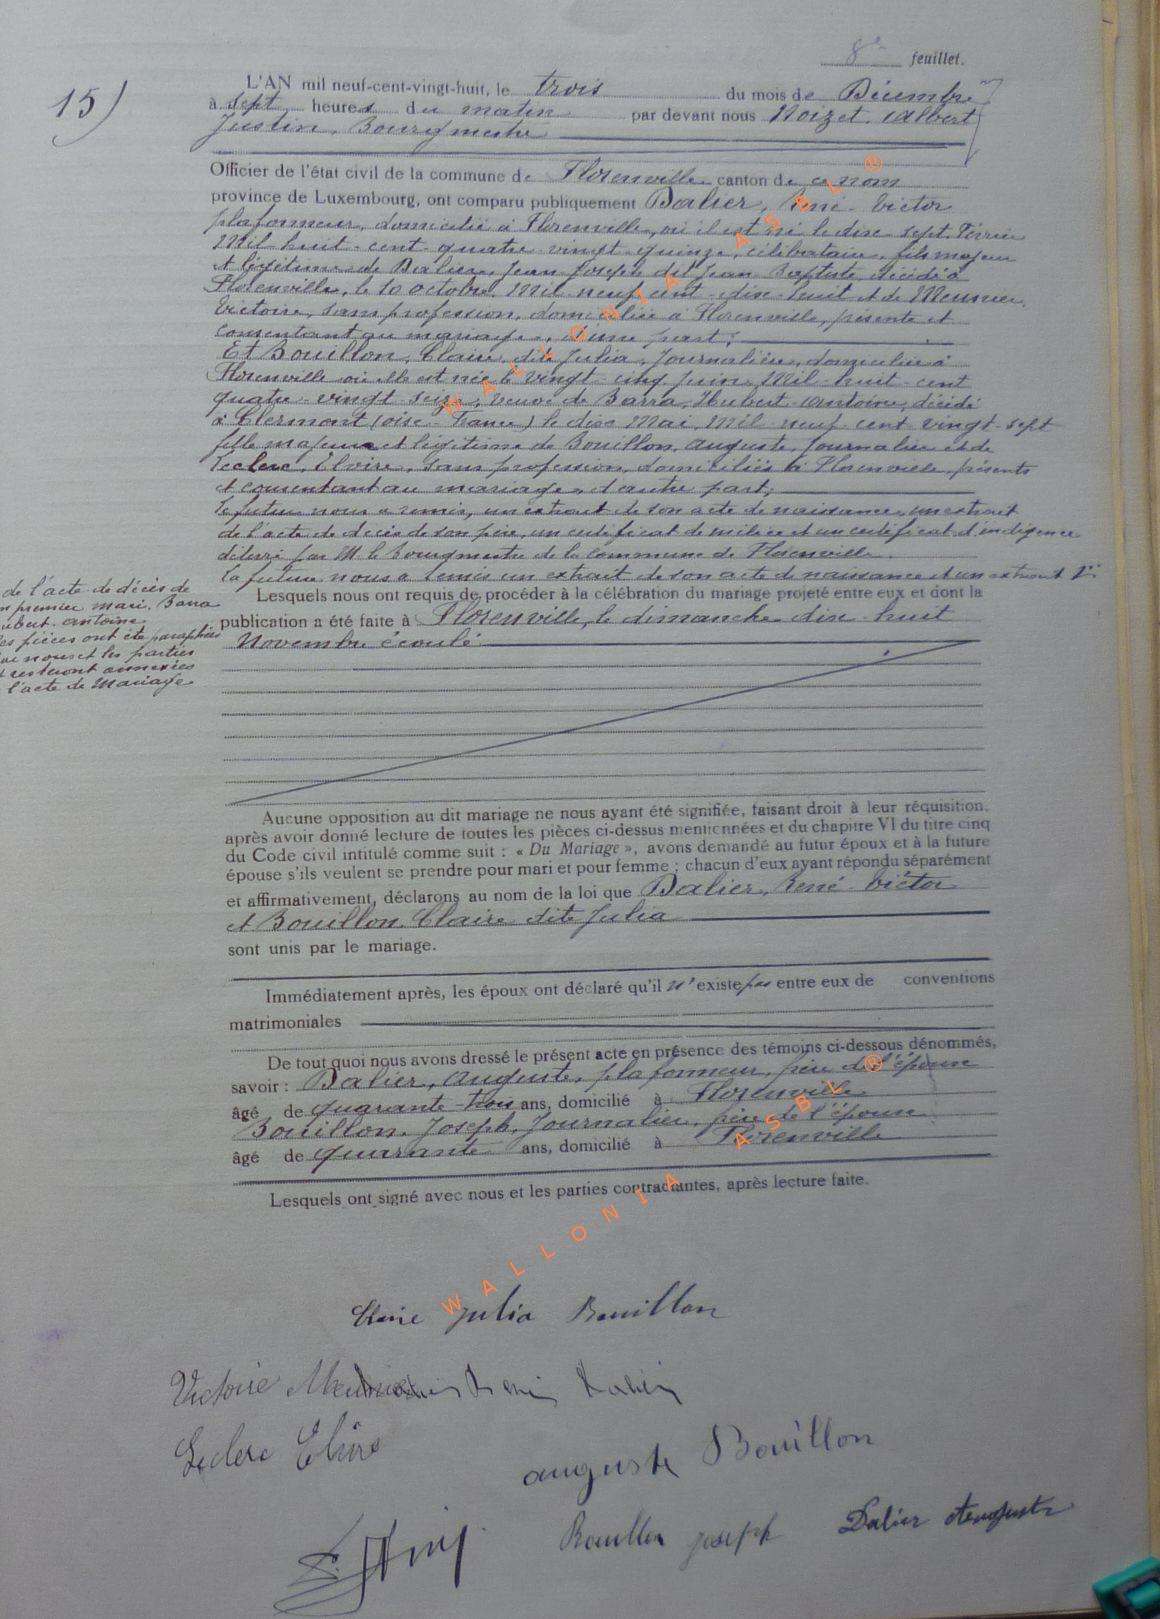 8e feuillet.
15)
L'AN mil neuf-cent-vingt-huit, le trois du mois de Décembre
à sept heures du matin par devant nous Noizet, Albert
Justin, Bourgmestre
Officier de l'état civil de la commune de Florenville canton de ce nom
province de Luxembourg, ont comparu publiquement Dalier, René-Victor
plafonneur, domicilié à Florenville, où il est né le dix sept Février
Mil huit-cent-quatre-vingt-quinze, célibataire, fils majeur
et légitime de Dalier, Jean Joseph dit Jean Baptiste, décédé à
Florenville, le 10 octobre, Mil-neuf cent-dix-huit et de Meunier,
Victoire, sans profession, domiciliée à Florenville, présente et
consentant au mariage, d'une part;
Et Bouillon, Claire, dite Julia, Journalière, domiciliée à
Florenville où elle est née le vingt-cinq Juin, Mil-huit-cent
quatre-vingt-seize, veuve de Barra, Hubert-Antoine, décédé
à Clermont (oise-France) le dix Mai, Mil-neuf cent vingt-sept
fille majeure et légitime de Bouillon, Auguste, Journalier et de
Leclerc, Elvire, sans profession, domiciliés à Florenville, présents
et consentant au mariage, d'autre part;
Le futur nous a remis, un extrait de son acte de naissance, un extrait
de l'acte de décès de son père, un certificat de milice et un certificat d'indigence
délivré par M. le bourgmestre de la commune de Florenville.
La future nous a remis un extrait de son acte de naissance et un extrait
de l'acte de décès de
premier mari, Barra
Hubert-Antoine
Les pièces ont été paraphées
par nous et les parties
et resteront annexées
à l'acte de Mariage
Lesquels nous ont requis de procéder à la célébration du mariage projeté entre eux et dont la
publication a été faite à Florenville, le dimanche dix-huit
Novembre écoulé
Aucune opposition au dit mariage ne nous ayant été signifiée, faisant droit à leur réquisition,
après avoir donné lecture de toutes les pièces ci-dessus mentionnées et du chapitre VI du titre cinq
du Code civil intitulé comme suit : « Du Mariage », avons demandé au futur époux et à la future
épouse s'ils veulent se prendre pour mari et pour femme ; chacun d'eux ayant répondu séparément
et affirmativement, déclarons au nom de la loi que Dalier, René-Victor
et Bouillon, Claire dite Julia
sont unis par le mariage.
Immédiatement après, les époux ont déclaré qu'il n'existe pas entre eux de conventions
matrimoniales
De tout quoi nous avons dressé le présent acte en présence des témoins ci-dessous dénommés,
savoir : Dalier, Auguste, plafonneur, frère de l'épouse
âgé de quarante-trois ans, domicilié à Florenville
Bouillon, Joseph, Journalier, frère de l'épouse
âgé de quarante ans, domicilié à Florenville
Lesquels ont signé avec nous et les parties contractantes, après lecture faite.
Claire Julia Bouillon
Victoire Meunier
Leclerc Elvire
auguste Bouillon
Bouillon joseph
Dalier Auguste
WALLONIA ASBL ®
WALLONIA ASBL ®